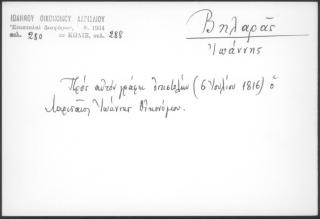 ΙΩΑΝΝΟΥ ΟΙΚΟΝΟΜΟΥ ΛΑΡΙΣΑΙΟΥ
Βηλαρᾶς
Ἐπιστολαὶ Διαφόρων, 1964
σελ. 280 = ΚΩΔΙΞ, σελ. 288
Ἰωάννης
Πρὸς αὐτὸν γράφει ἐπιστολὴν (6 Ἰουλίου 1816) ὁ
Λαρισαῖος Ἰωάννης Οἰκονόμου.